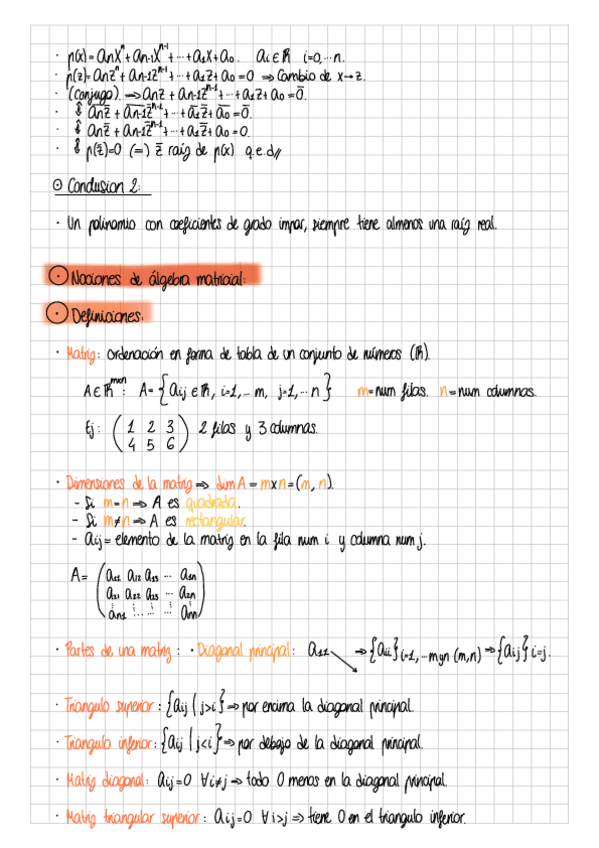 · p(x) = anxⁿ + an-1xⁿ⁻¹ + ··· + a1x + a0. ai ∈ ℝ i=0,··· n.
· p(z) = anzⁿ + an-1zⁿ⁻¹ + ··· + a1z + a0 = 0 ⇒ Cambio de x→z.
· (conjugo). ⇒ anz + an-1zⁿ⁻¹ + ··· + a1z + a0 = 0̄.
· ⇕ anz̄ + an-1z̄ⁿ⁻¹ + ··· + a1z̄ + a0 = 0̄.
· ⇕ anz̄ + an-1z̄ⁿ⁻¹ + ··· + a1z̄ + a0 = 0.
· ⇕ p(z̄)=0 (=) z̄ raíz de p(x) q.e.d//
⊙ Conclusion 2:
· Un polinomio con coeficientes de grado impar, siempre tiene almenos una raíz real.
⊙ Nociones de álgebra matricial:
⊙ Definiciones:
· Matriz: Ordenación en forma de tabla de un conjunto de números (ℝ).
A∈ℝᵐˣⁿ: A= {aij ∈ ℝ, i=1,... m, j=1,... n} m=num filas. n=num columnas.
Ej: (1 2 3
4 5 6) 2 filas y 3 columnas.
· Dimensiones de la matriz ⇒ dim A = mxn = (m, n).
- Si m=n ⇒ A es quadrada.
- Si m≠n ⇒ A es rectangular.
- aij = elemento de la matriz en la fila num i y columna num j.
A= (a11 a12 a13 ··· a1n
a21 a22 a23 ··· a2n
⋮ ⋮ ⋮ ⋮
an1 ··· ann)
· Partes de una matriz: · Diagonal principal: a11 ↘ ⇒ {aii} i=1,...myn (m,n) ⇒ {aij} i=j.
· Triangulo superior: {aij | j>i} ⇒ por encima la diagonal principal.
· Triangulo inferior: {aij | j<i} ⇒ por debajo de la diagonal principal.
· Matriz diagonal: aij=0 ∀i≠j ⇒ todo 0 menos en la diagonal principal.
· Matriz triangular superior: aij=0 ∀ i>j ⇒ tiene 0 en el triangulo inferior.